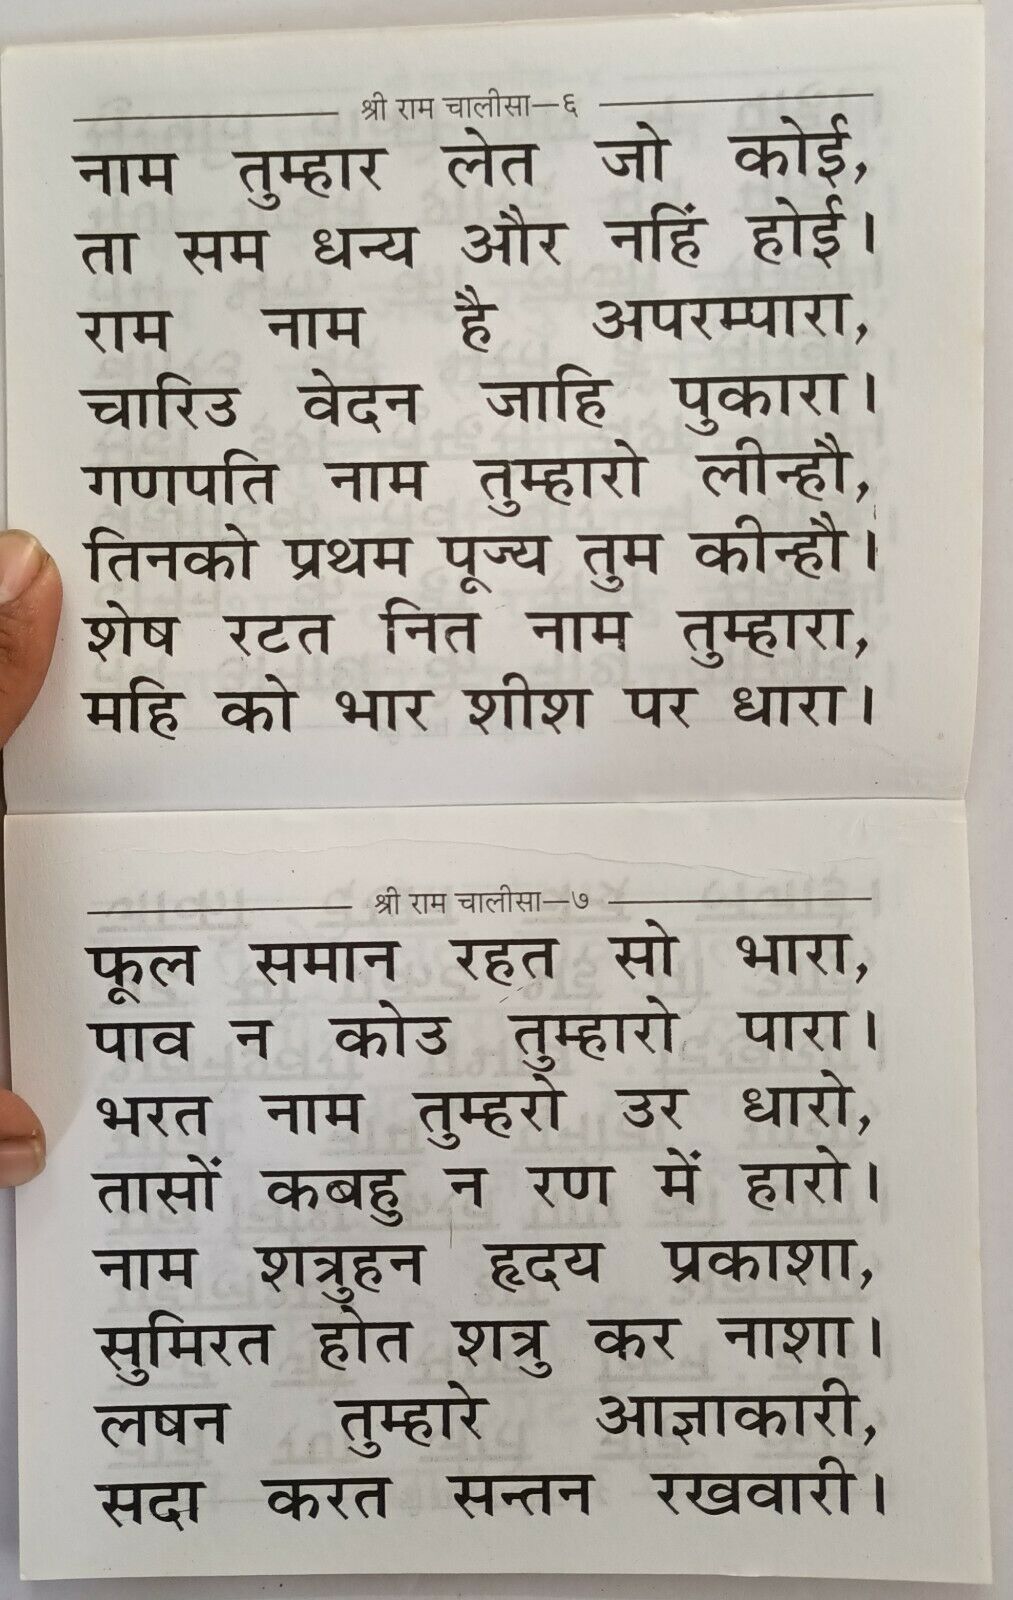 श्री राम चालीसा—६
नाम तुम्हार लेत जो कोई,
ता सम धन्य और नहिं होई।
राम नाम है अपरम्पारा,
चारिउ वेदन जाहि पुकारा।
गणपति नाम तुम्हारो लीन्हौ,
तिनको प्रथम पूज्य तुम कीन्हौ।
शेष रटत नित नाम तुम्हारा,
महि को भार शीश पर धारा।
श्री राम चालीसा—७
फूल समान रहत सो भारा,
पाव न कोउ तुम्हारो पारा।
भरत नाम तुम्हरो उर धारो,
तासों कबहु न रण में हारो।
नाम शत्रुहन हृदय प्रकाशा,
सुमिरत होत शत्रु कर नाशा।
लषन तुम्हारे आज्ञाकारी,
सदा करत सन्तन रखवारी।